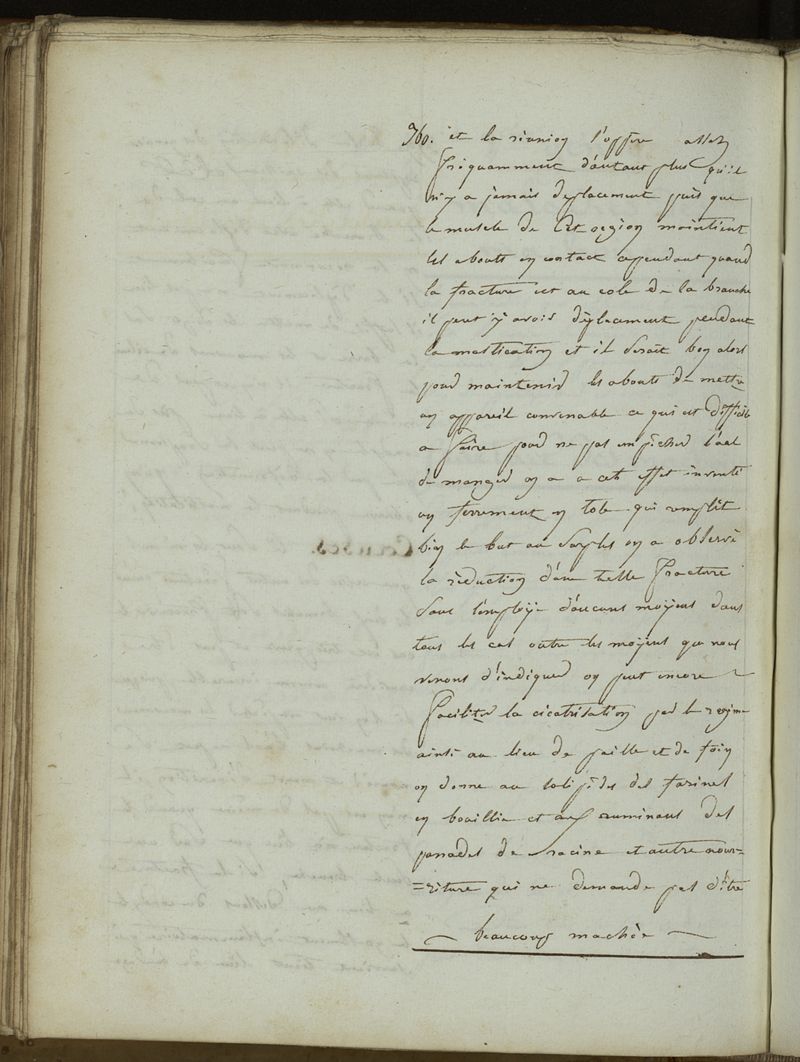 360. et la réunion s'opere assez
friquamment d'autant plus qu'il
n'y a jamais deplacement puis que
le muscle de cet region maintient
les abouts en contact cependant quand
la fracture est au cole de la branche
il peut y avoir déplacement pendant
la mastication et il serait bon alors
pour maintenir les abouts de mettre
un appareil convenable ce qui est difficile
a faire pour ne pas empecher l'anl
de manger on a a cet effet inventé
un ferrement en tole qui remplit
bien le but au surplus on a observé
la réduction d'une telle fracture
sans l'employe d'aucuns moyens dans
tous les cas outre les moyens que nous
venons d'indiquer on peut encore
faciliter la cicatrisation par le regime
ainsi au lieu de paille et de foin
on donne au solipédes des farines
en bouillie et aux ruminans des
panades de racine et autre nour=
=riture qui ne demande pas d'être
beaucoup machée
Causes.